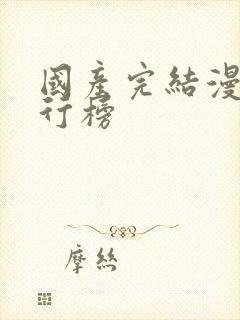 國產完結漫
行榜
摩丝